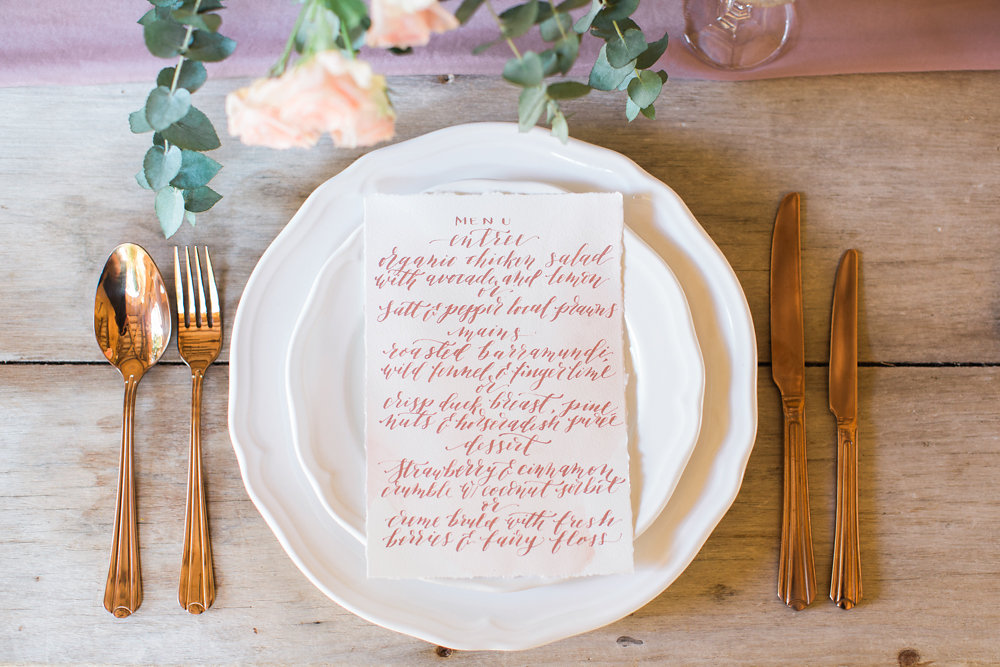 MENU
entrée
organic chicken salad
with avocado, and lemon
or
salt & pepper local prawns
mains
roasted barramundi,
wild fennel, & fingerlime
or
crisp duck breast, pine
nuts & horseradish puree
dessert
strawberry & cinnamon
crumble w/ coconut sorbet
or
creme brulé with fresh
berries & fairy floss